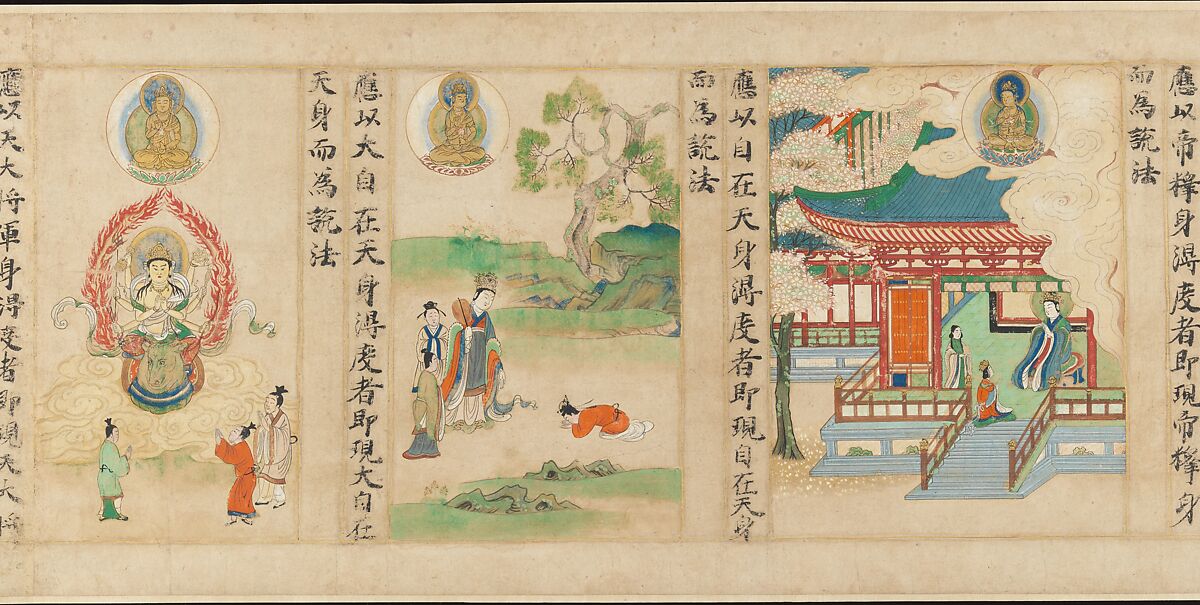 應以帝釋身淂度者即現帝釋身
而為說法
應以自在天身淂度者即現自在天身
而為說法
應以大自在天身淂度者即現大自在
天身而為說法
應以天大將軍身淂度者即現天大將